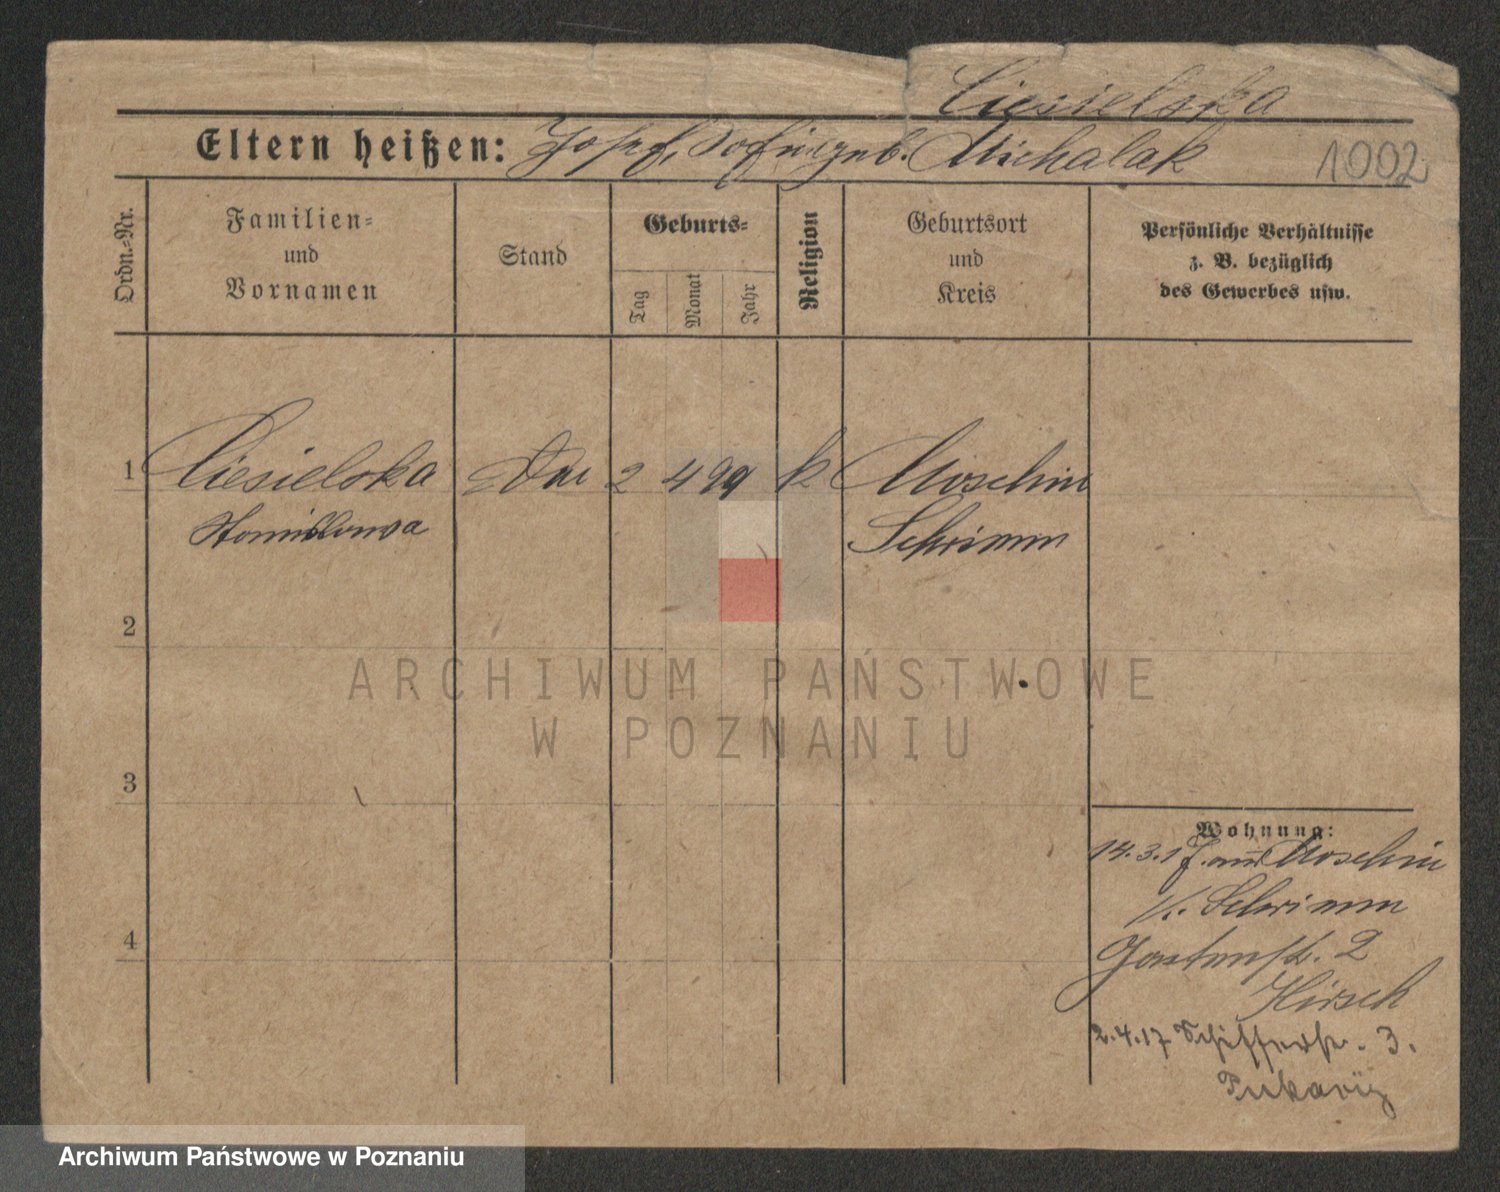 Ciesielska
Eltern heißen: Josef, Sofia geb. Michalak 1002
Ordn.-Nr.
Familien- und Vornamen
Stand
Geburts-
Tag
Monat
Jahr
Religion
Geburtsort und Kreis
Persönliche Verhältnisse z. B. bezüglich des Gewerbes usw.
1 Ciesielska 2 4 99 k Moschin
Stanislawa Schrimm
2
3
4
Wohnung:
14.3.17 aus Moschin
K. Schrimm
2
Hirsch
2.4.17 Schifferstr. 3.
ARCHIWUM PAŃSTWOWE
W POZNANIU
Archiwum Państwowe w Poznaniu